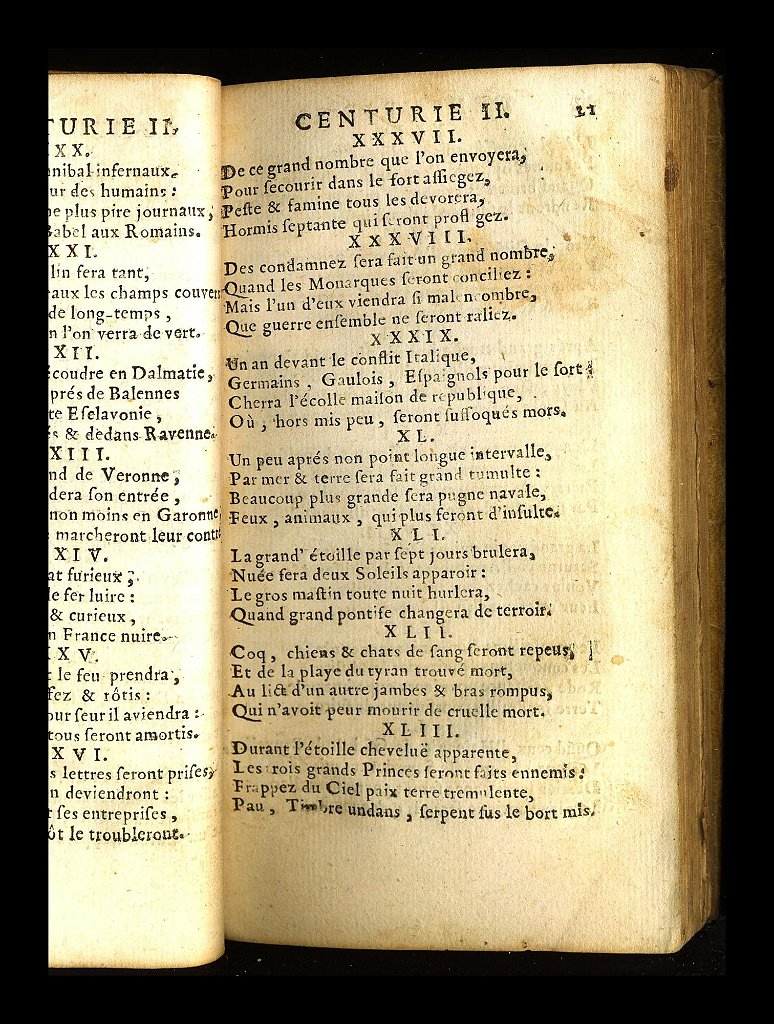 TURIE II.
XX.
nnibal infernaux.
ur des humains :
ne plus pire journaux,
Babel aux Romains.
XXI.
lin fera tant,
eaux les champs couver
de long-temps,
n l'on verra de vert.
XII.
écoudre en Dalmatie,
prés de Balennes
te Esclavonie,
s & dedans Ravenne.
XIII.
nd de Veronne,
dera son entrée,
non moins en Garonne
marcheront leur cont
XIV.
at furieux ;
le fer luire :
& curieux,
n France nuire.
XV.
le feu prendra,
fez & rôtis :
our seur il aviendra :
tous seront amortis.
XVI.
s lettres seront prises,
n deviendront :
ses entreprises,
ôt le troubleront.
CENTURIE II. 21
XXXVII.
De ce grand nombre que l'on envoyera,
Pour secourir dans le fort assiegez,
Peste & famine tous les devorera,
Hormis septante qui seront profligez.
XXXVIII.
Des condamnez sera fait un grand nombre,
Quand les Monarques seront conciliez :
Mais l'un d'eux viendra si malencombre,
Que guerre ensemble ne seront raliez.
XXXIX.
Un an devant le conflit Italique,
Germains, Gaulois, Espagnols pour le fort
Cherra l'écolle maison de republique,
Où, hors mis peu, seront suffoqués mors.
XL.
Un peu aprés non point longue intervalle,
Par mer & terre sera fait grand tumulte :
Beaucoup plus grande sera pugne navale,
Feux, animaux, qui plus feront d'insulte.
XLI.
La grand' étoille par sept jours brulera,
Nuée fera deux Soleils apparoir :
Le gros mastin toute nuit hurlera,
Quand grand pontife changera de terroir.
XLII.
Coq, chiens & chats de sang seront repeus,
Et de la playe du tyran trouvé mort,
Au lict d'un autre jambes & bras rompus,
Qui n'avoit peur mourir de cruelle mort.
XLIII.
Durant l'étoille cheveluë apparente,
Les trois grands Princes seront faits ennemis :
Frappez du Ciel paix terre tremulente,
Pau, Timbre undans, serpent sus le bort mis.